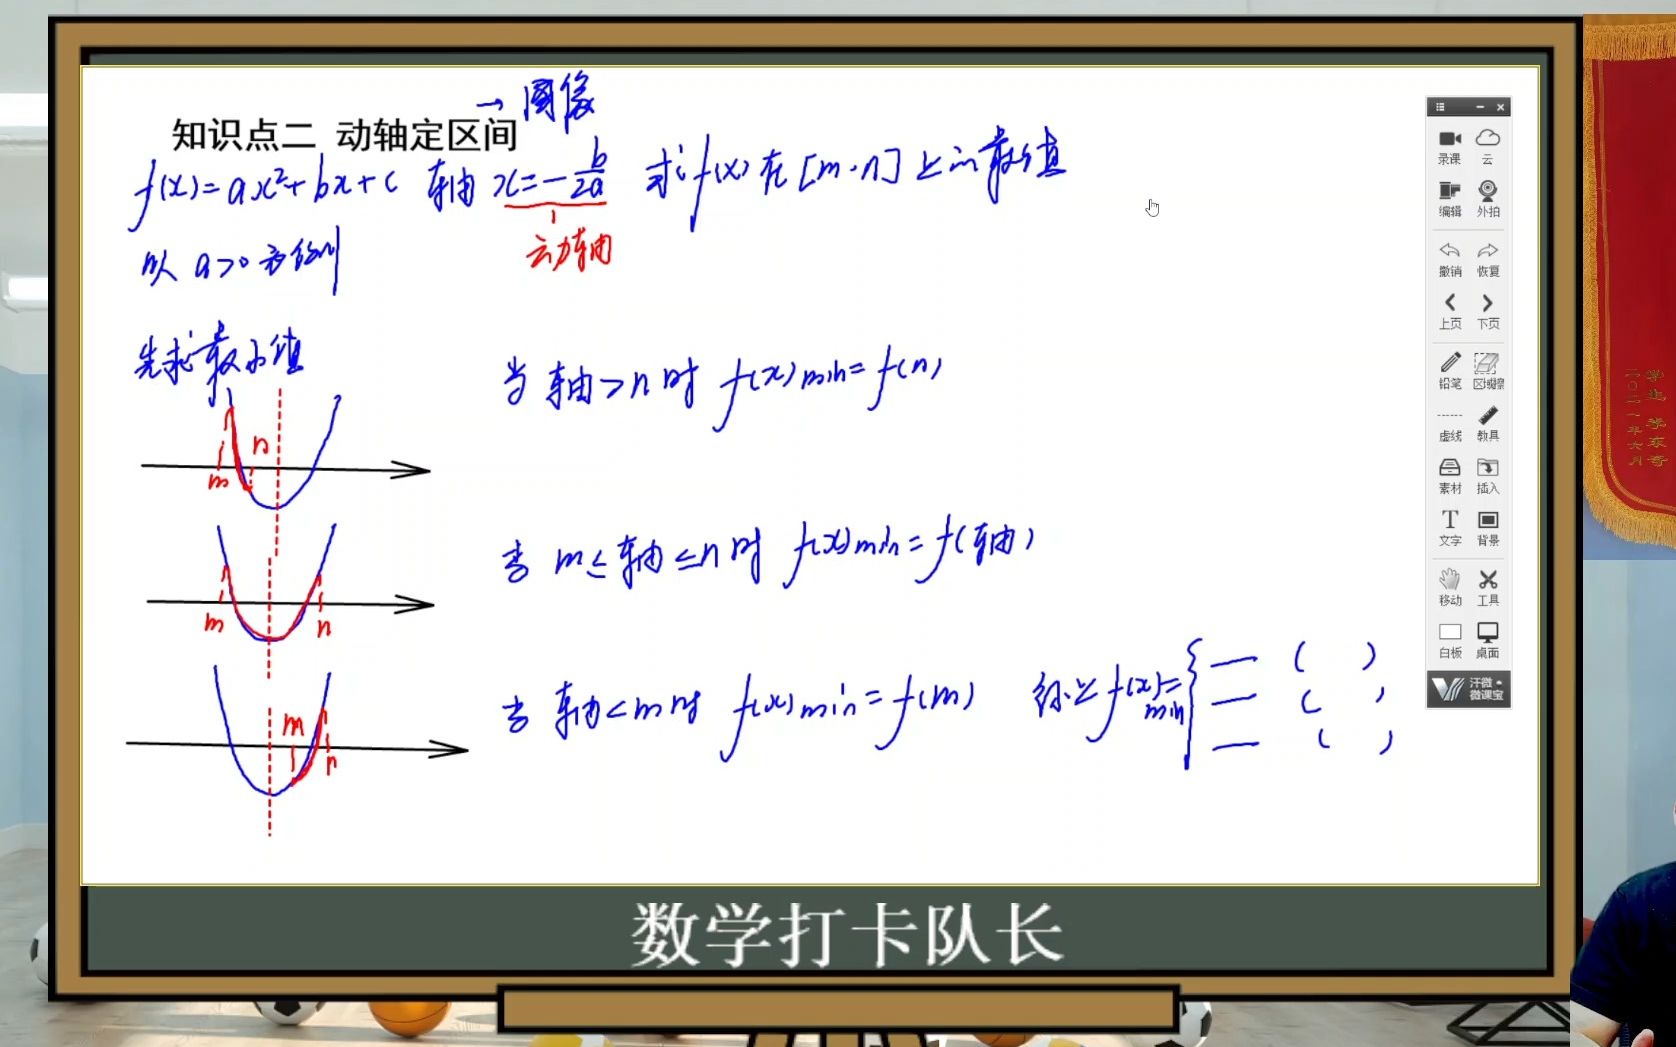 知识点二 动轴定区间 → 图像
f(x)=ax²+bx+c 轴 x=-b/2a 求 f(x) 在 [m,n] 上的最值
动轴
以 a>0 为例
先求最小值
当 轴>n 时 f(x)min=f(n)
m n
当 m≤轴≤n 时 f(x)min=f(轴)
m n
当 轴<m 时 f(x)min=f(m) 综上 f(x)min={ — ( )
— ( )
— ( )
m n
录课 云
编辑 外拍
撤销 恢复
上页 下页
铅笔 区域擦
虚线 教具
素材 插入
T
文字 背景
移动 工具
白板 桌面
汗微
微课宝
数学打卡队长
二〇二一年六月